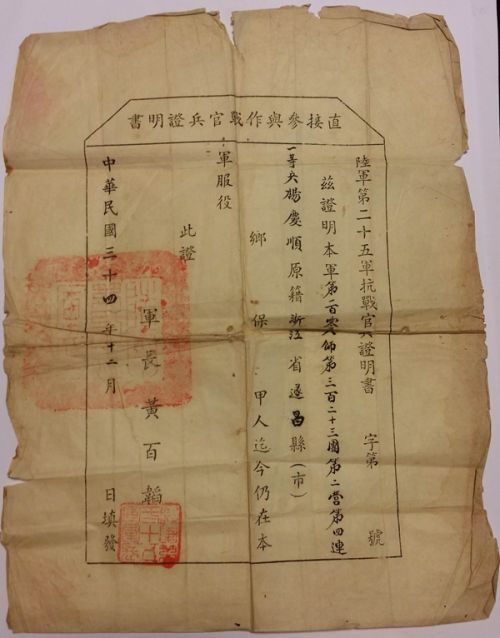 直接參與作戰官兵證明書
陸軍第二十五軍抗戰官兵證明書 字第 號
茲證明本軍第一百零八師第三百二十三團第二營第四連
一等兵楊慶順原籍浙江省遂昌縣(市)
鄉 保 甲人迄今仍在本
軍服役
此證
軍長黃百韜
中華民國三十四年十二月 日填發